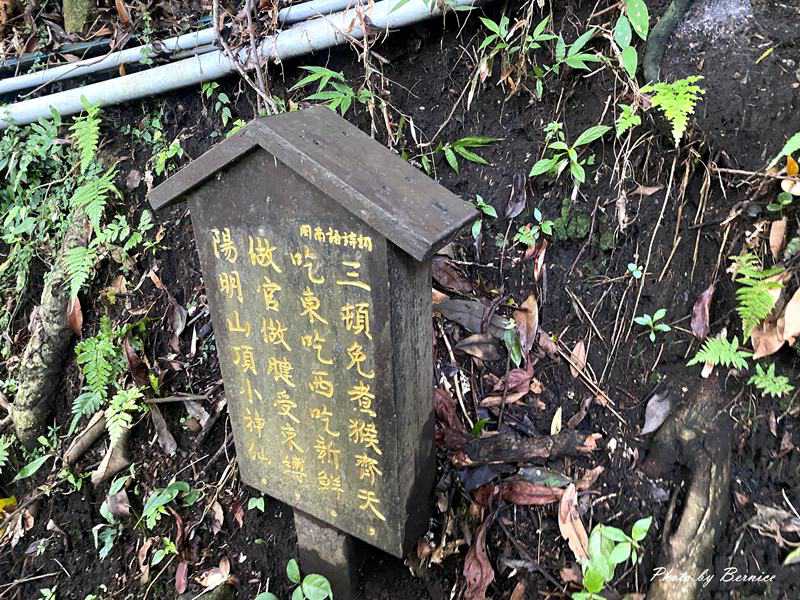 三頓免煮猴齊天。
吃東吃西吃新鮮。
做官做腱受束縛。
陽明山頂小神仙。
Photo by Bernice